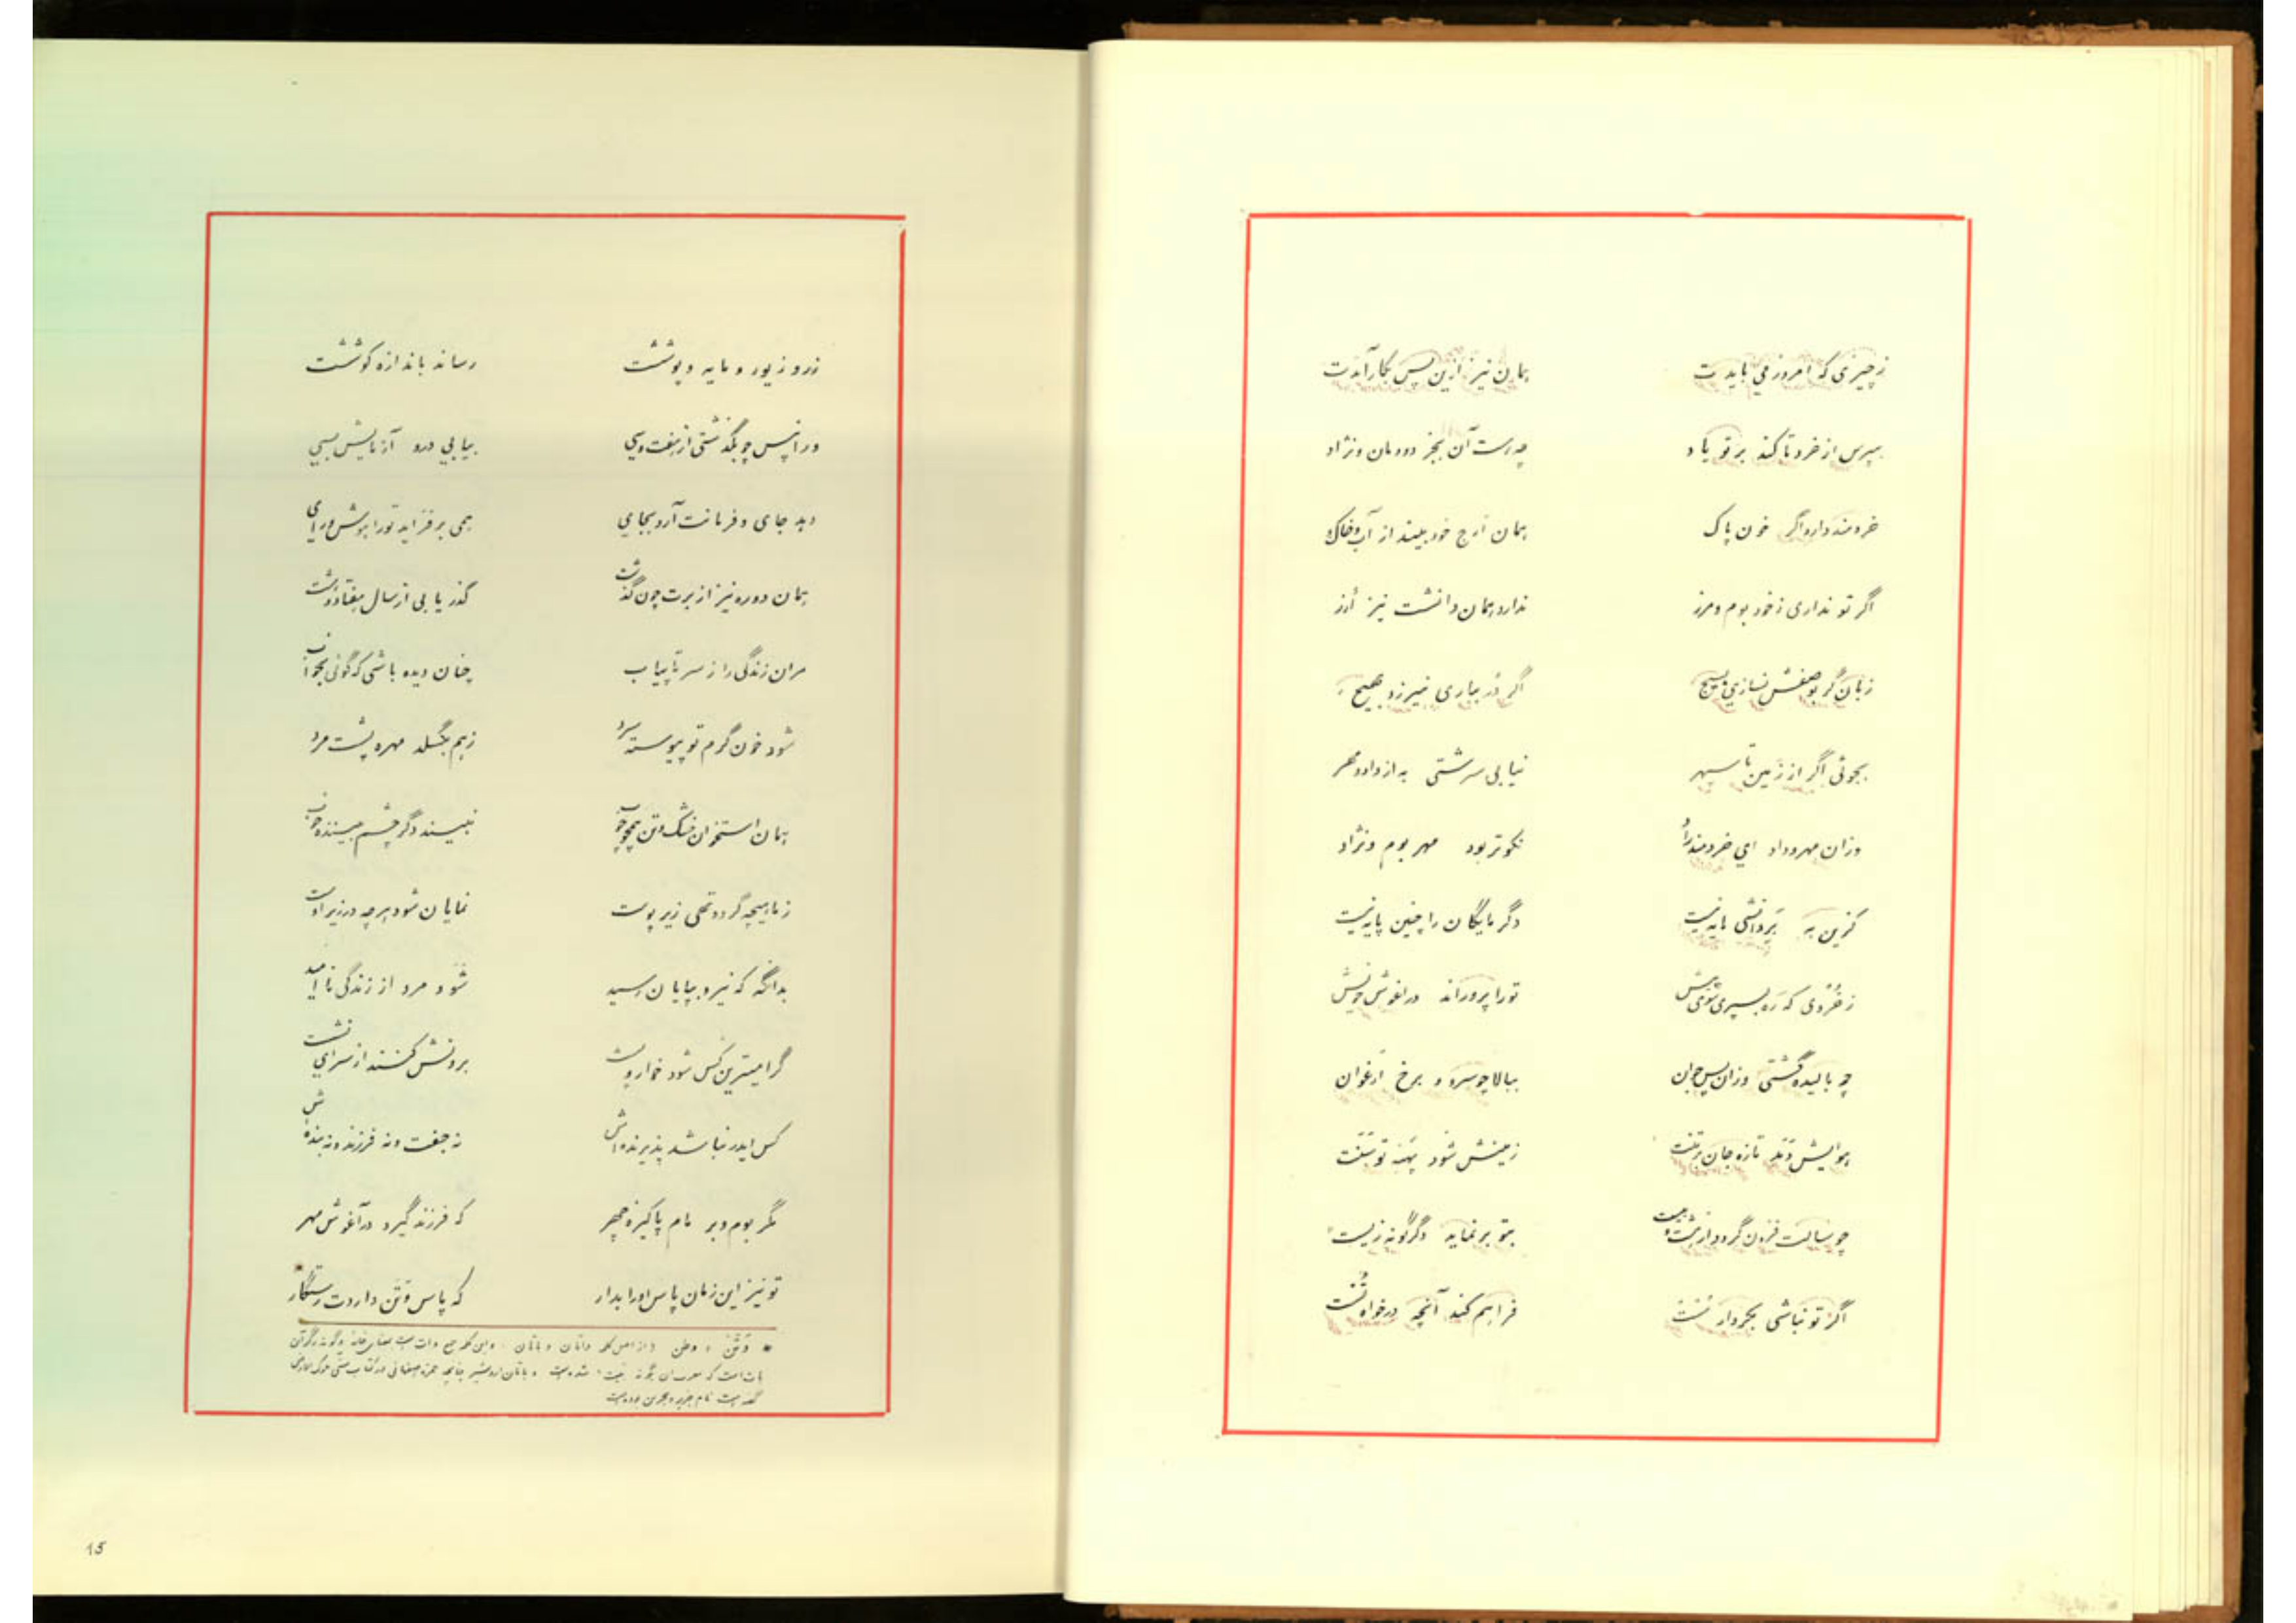 ز چیزی که امروز می بایدت    همان نیز ازین پس بکار آیدت
بپرس از خرد تا کند بر تو یاد    چه رست آن بجز دودمان و نژاد
خردمند دارد اگر خون پاک    همان ارج خود بیند از آب و خاک
اگر تو نداری ز خود بوم و مرز    ندارد همان دانشت نیز ارز
زبان گر بوصفش نسازی بسیج    اگر در بباری نیرزد بهیچ
بجوئی اگر از زمین تا سپهر    نیابی سرشتی به از داد و مهر
وزان مهر و داد ای خردمند راد    نکوتر بود مهر بوم و نژاد
کزین به بر دانشی مایه نیست    دگر مایگان را چنین پایه نیست
ز خردی که ره بسپری سوی بیش    تو را پروراند در آغوش خویش
چو بالیده گشتی وزان پس جوان    ببالا چو سرو و برخ ارغوان
هوایش دمد تازه جان بر تنت    زمینش شود پهنه توسنت
چو سالت فزون گردد از شست و بیست    بتو بر نماید دگرگونه زیست
اگر تو نباشی بجز دار تنت    فراهم کند آنچه درخواه تنت
زر و زیور و مایه و پوششت    رساند باندازه کوششت
وزانپس چو بگذشتی از هفت و سی    بیابی درو آزمایش بسی
دهد جای و فرمانت آرد بجای    همی برفزاید تو را هوش و رای
همان دوره نیز از برت چون گذشت    گذر یابی از سال هفتاد و هشت
مران زندگی را ز سر تا پیاب    چنان دیده باشی که گوئی بخواب
شود خون گرم تو پیوسته سرد    ز هم بگسلد مهره پشت مرد
همان استخوان خشک و تن همچو چوب    نبیند دگر چشم بیننده خوب
ز ماهیچه گردد تهی زیر پوست    نمایان شود هر چه در زیر اوست
بدانگه که نیرو بپایان رسید    شود مرد از زندگی ناامید
گرامیترین کس شود خوار و پست    برونش کنند از سرای نشست
کس ایدر نباشد پذیرنده اش    نه جفت و نه فرزند و نه بنده اش
مگر بوم و بر مام پاکیزه چهر    که فرزند گیرد در آغوش مهر
تو نیز این زمان پاس او را بدار    که پاس وتن داردت رستگار *
* وتن ، وطن
گفته است نام
15